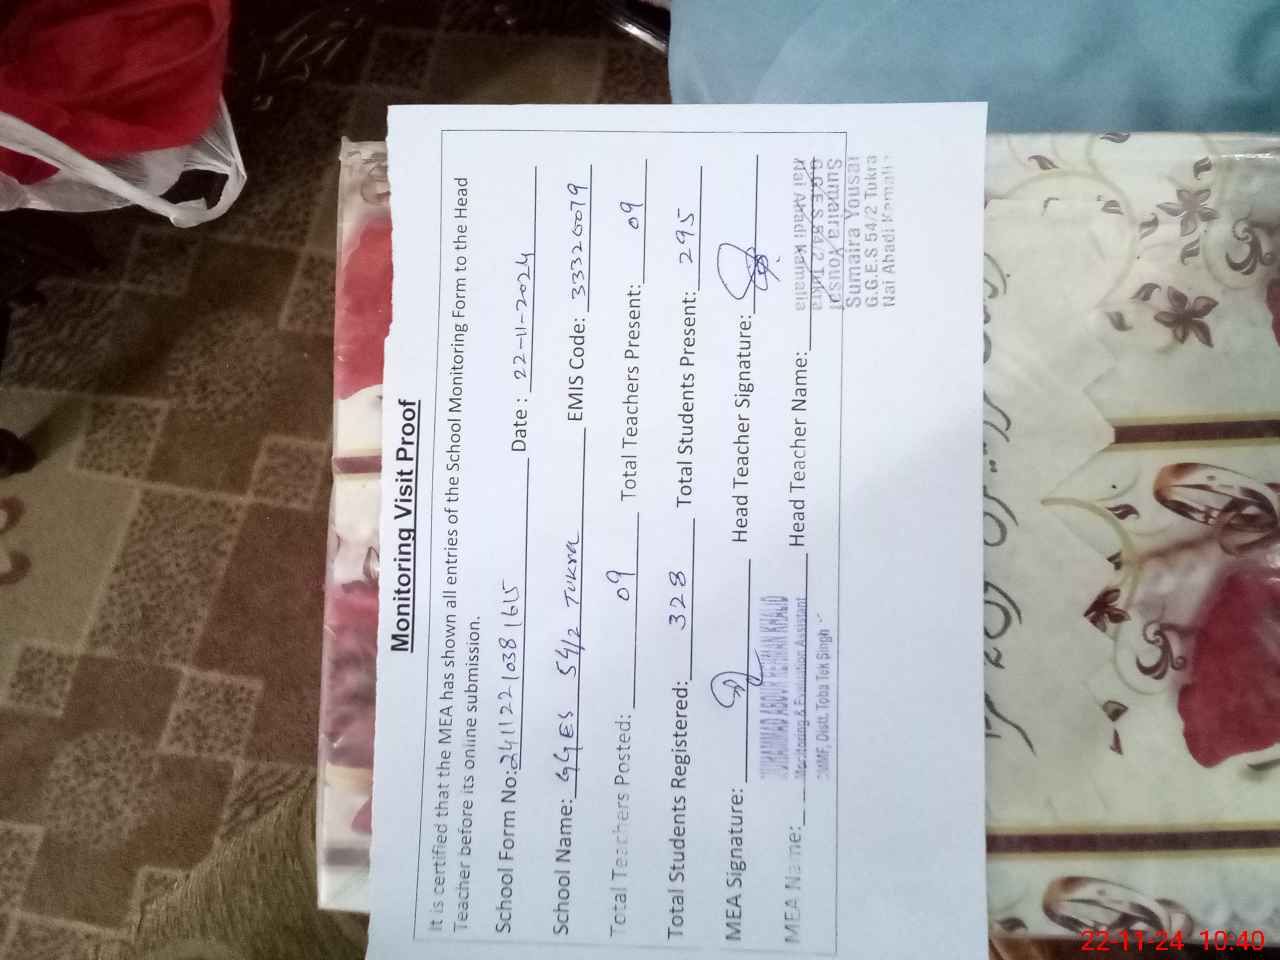 Monitoring Visit Proof
It is certified that the MEA has shown all entries of the School Monitoring Form to the Head
Teacher before its online submission.
School Form No: 2411221038 1615 Date : 22-11-2024
School Name: GGES 54/2 TUKRA EMIS Code: 33326079
Total Teachers Posted: 09 Total Teachers Present: 09
Total Students Registered: 328 Total Students Present: 295
MEA Signature: Head Teacher Signature:
MUHAMMAD ABDUR REHMAN KHALID
MEA Name: Monitoring & Evaluation Assistant Head Teacher Name:
Distt. Toba Tek Singh
Nai Abadi Kamalia
G.G.E.S 54/2 Tukra
Sumaira Yousaf
Sumaira Yousaf
G.G.E.S 54/2 Tukra
Nai Abadi Kamalia
22-11-24 10:40